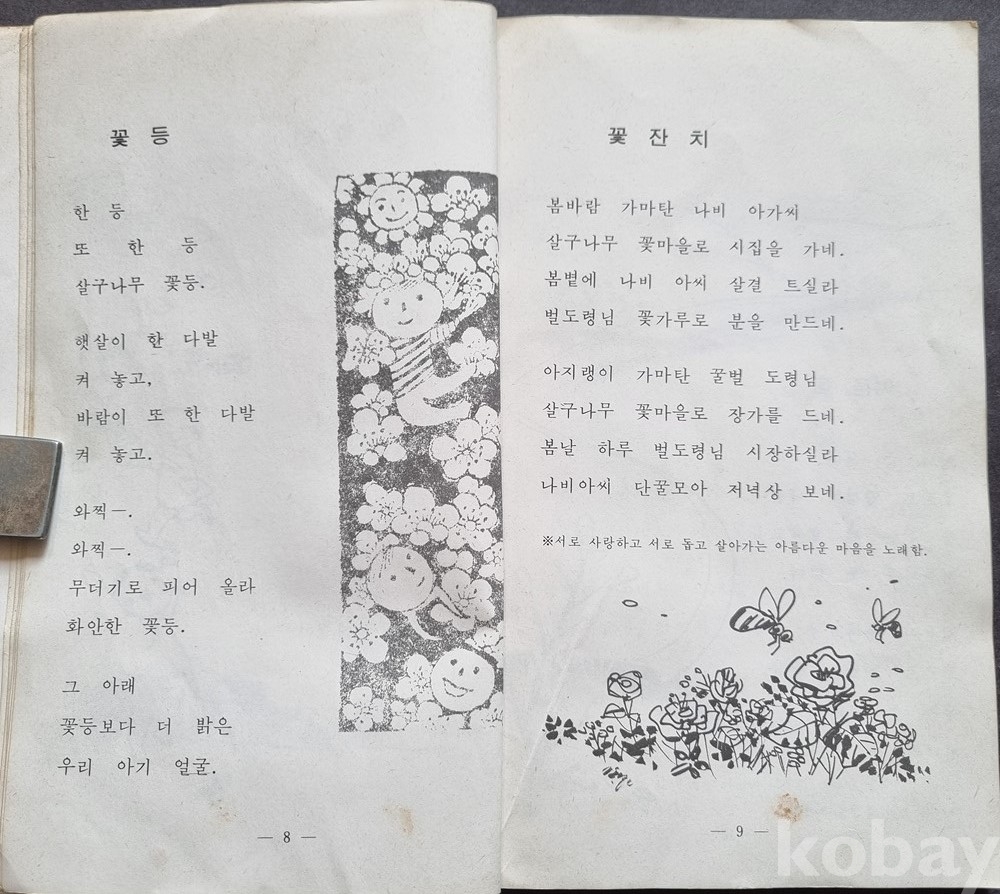 꽃 등
한 등
또 한 등
살구나무 꽃등.
햇살이 한 다발
켜 놓고,
바람이 또 한 다발
켜 놓고.
와찍―.
와찍―.
무더기로 피어 올라
화안한 꽃등.
그 아래
꽃등보다 더 밝은
우리 아기 얼굴.
― 8 ―
꽃 잔 치
봄바람 가마탄 나비 아가씨
살구나무 꽃마을로 시집을 가네.
봄볕에 나비 아씨 살결 트실라
벌도령님 꽃가루로 분을 만드네.
아지랭이 가마탄 꿀벌 도령님
살구나무 꽃마을로 장가를 드네.
봄날 하루 벌도령님 시장하실라
나비아씨 단꿀모아 저녁상 보네.
※서로 사랑하고 서로 돕고 살아가는 아름다운 마음을 노래함.
― 9 ―
kobay